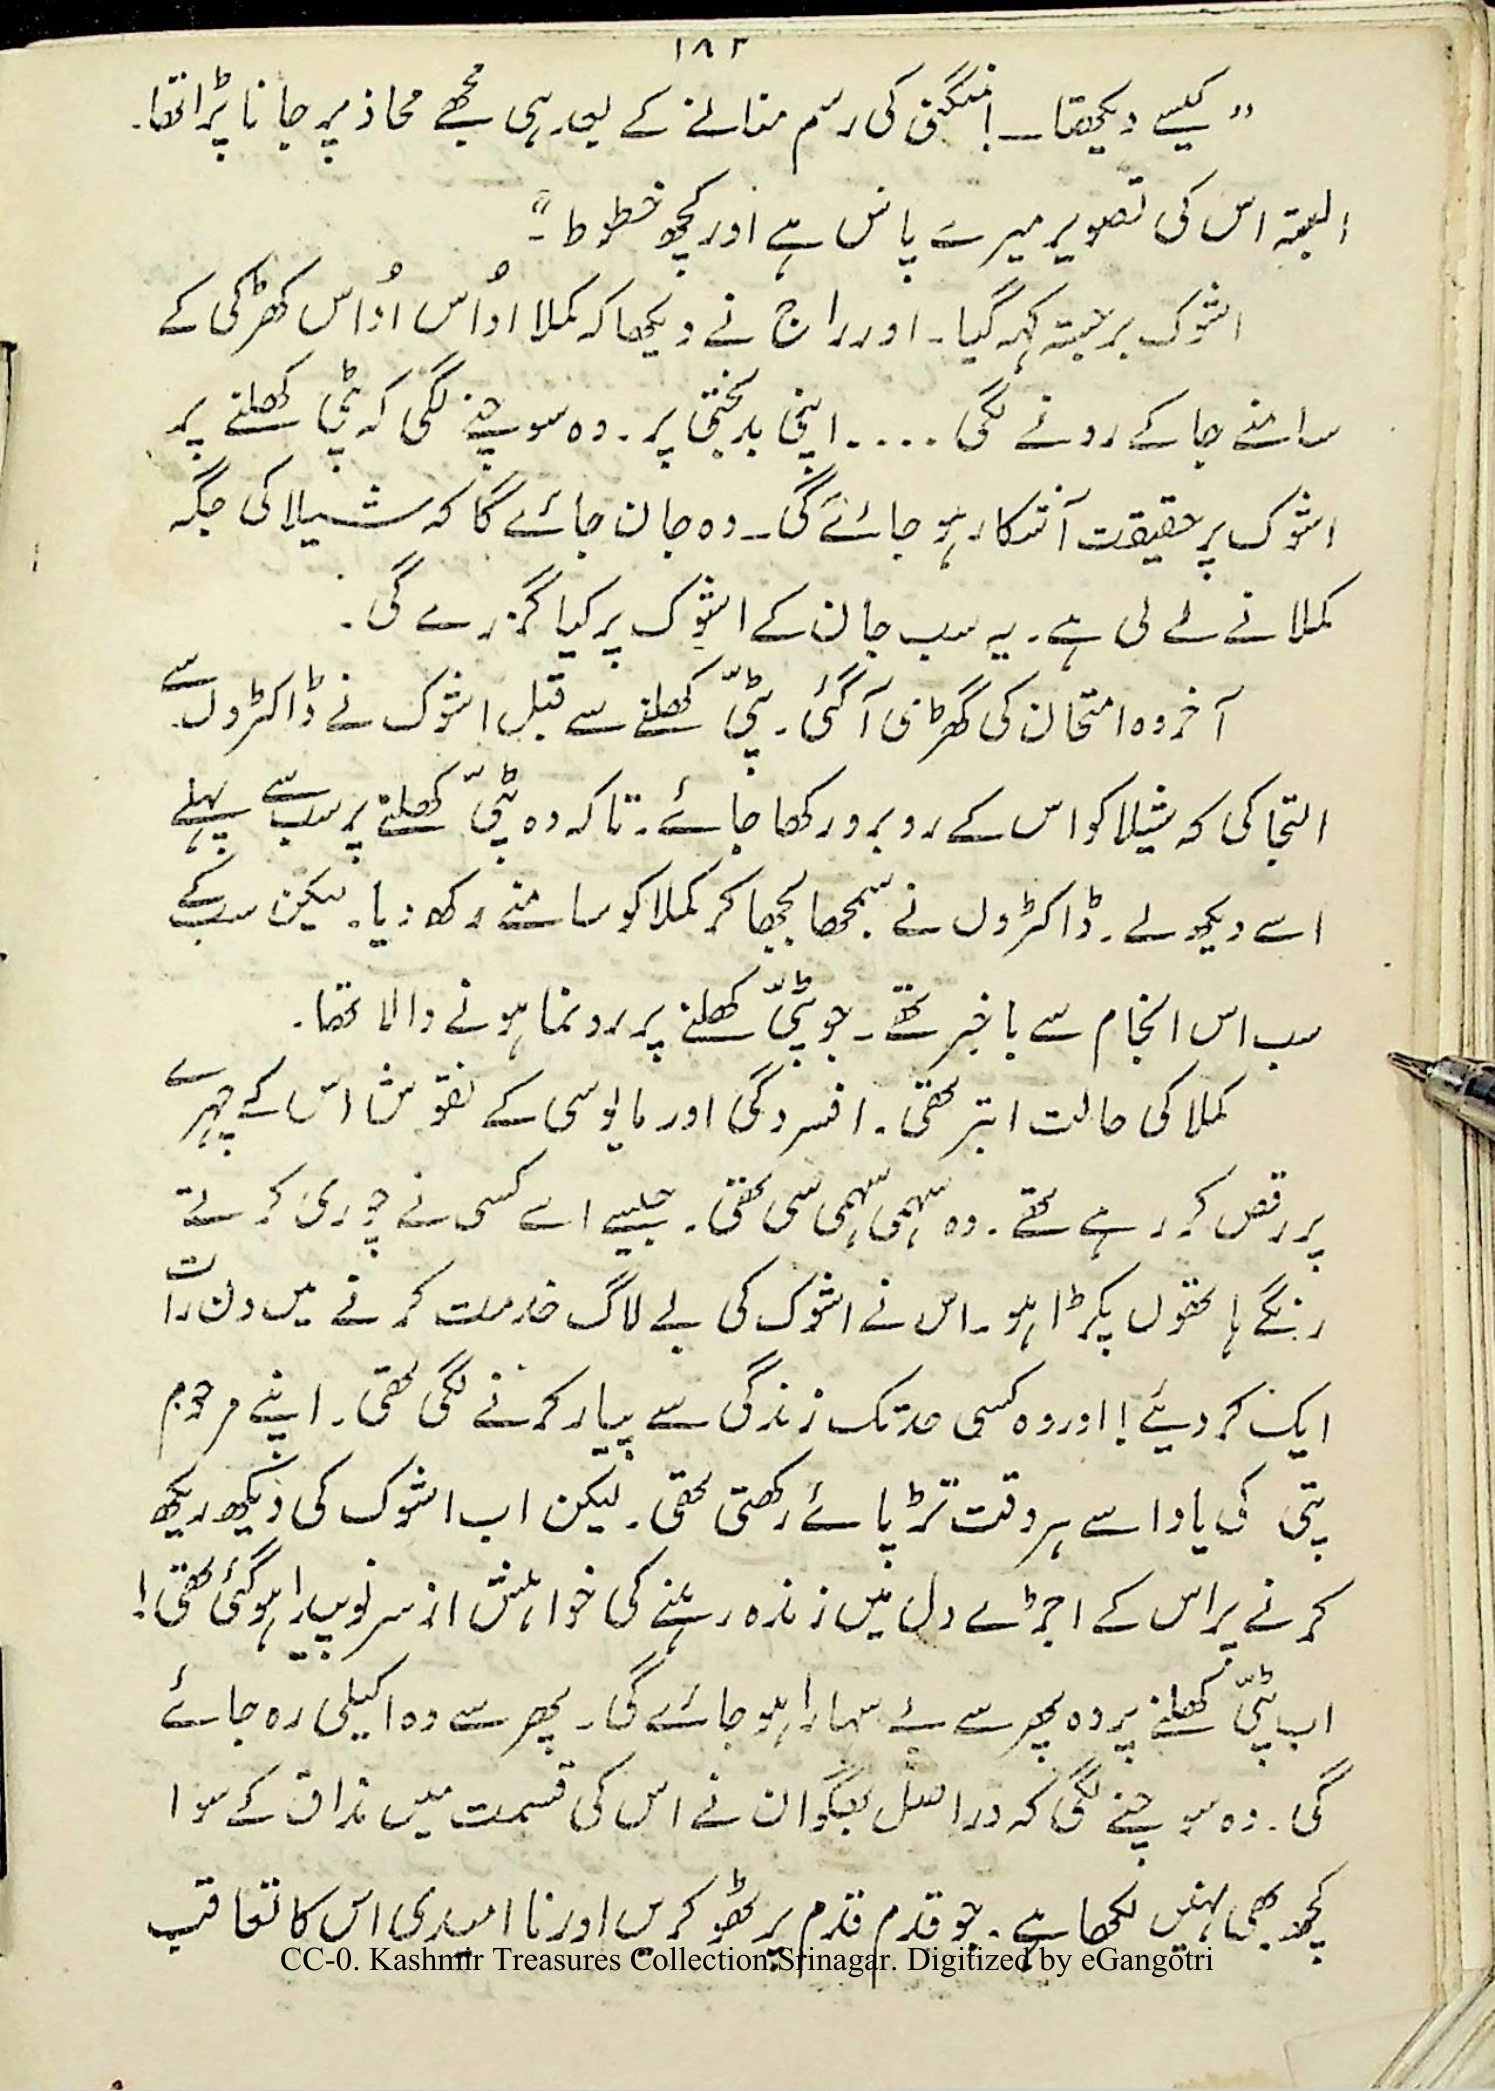 ۱۸۲
"کیسے دیکھتا۔ منگنی کی رسم منانے کے بعد ہی مجھے محاذ پر جانا پڑا تھا۔
البتہ اس کی تصویر میرے پاس ہے اور کچھ خطوط۔"
اشوک برجستہ کہہ گیا۔ اور راج نے دیکھا کہ کملا اُداس اُداس کھڑکی کے
سامنے جا کے رونے لگی .... اپنی بدبختی پر۔ وہ سوچنے لگی کہ پٹی کھلنے پر
اشوک پر حقیقت آشکار ہو جائے گی۔ وہ جان جائے گا کہ شیلا کی جگہ
کملا نے لے لی ہے۔ یہ سب جان کے اشوک پر کیا گزرے گی۔
آخر وہ امتحان کی گھڑی آ گئی۔ پٹیّ کھلنے سے قبل اشوک نے ڈاکٹروں سے
التجا کی کہ شیلا کو اس کے روبرو رکھا جائے۔ تاکہ وہ پٹیّ کھلنے پر سب سے پہلے
اسے دیکھ لے۔ ڈاکٹروں نے سمجھا بجھا کر کملا کو سامنے رکھ دیا۔ لیکن سب کے
سب اس انجام سے باخبر تھے۔ جو پٹیّ کھلنے پر رونما ہونے والا تھا۔
کملا کی حالت ابتر تھی۔ افسردگی اور مایوسی کے نقوش اس کے چہرے
پر رقص کر رہے تھے۔ وہ سہمی سہمی سی تھی۔ جیسے اسے کسی نے چوری کرتے
رنگے ہاتھوں پکڑا ہو۔ اس نے اشوک کی بے لاگ خدمت کرنے میں دن رات
ایک کر دیئے! اور وہ کسی حد تک زندگی سے پیار کرنے لگی تھی۔ اپنے مرحوم
پتی کی یاد اسے ہر وقت تڑپائے رکھتی تھی۔ لیکن اب اشوک کی دیکھ ریکھ
کرنے پر اس کے اجڑے دل میں زندہ رہنے کی خواہش از سر نو پیدا ہو گئی تھی!
اب پٹیّ کھلنے پر وہ پھر سے بے سہارا ہو جائے گی۔ پھر سے وہ اکیلی رہ جائے
گی۔ وہ سوچنے لگی کہ دراصل بھگوان نے اس کی قسمت میں مذاق کے سوا
کچھ بھی نہیں لکھا ہے۔ جو قدم قدم پر ٹھوکریں اور ناامیدی اس کا تعاقب
CC-0. Kashmir Treasures Collection Srinagar. Digitized by eGangotri